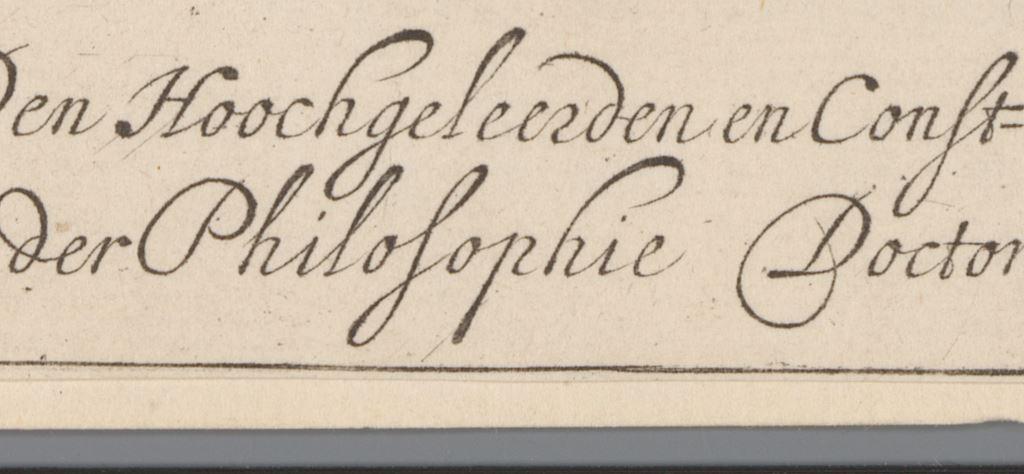 Den Hoochgeleerden en Conſt-
der Philoſophie Doctor